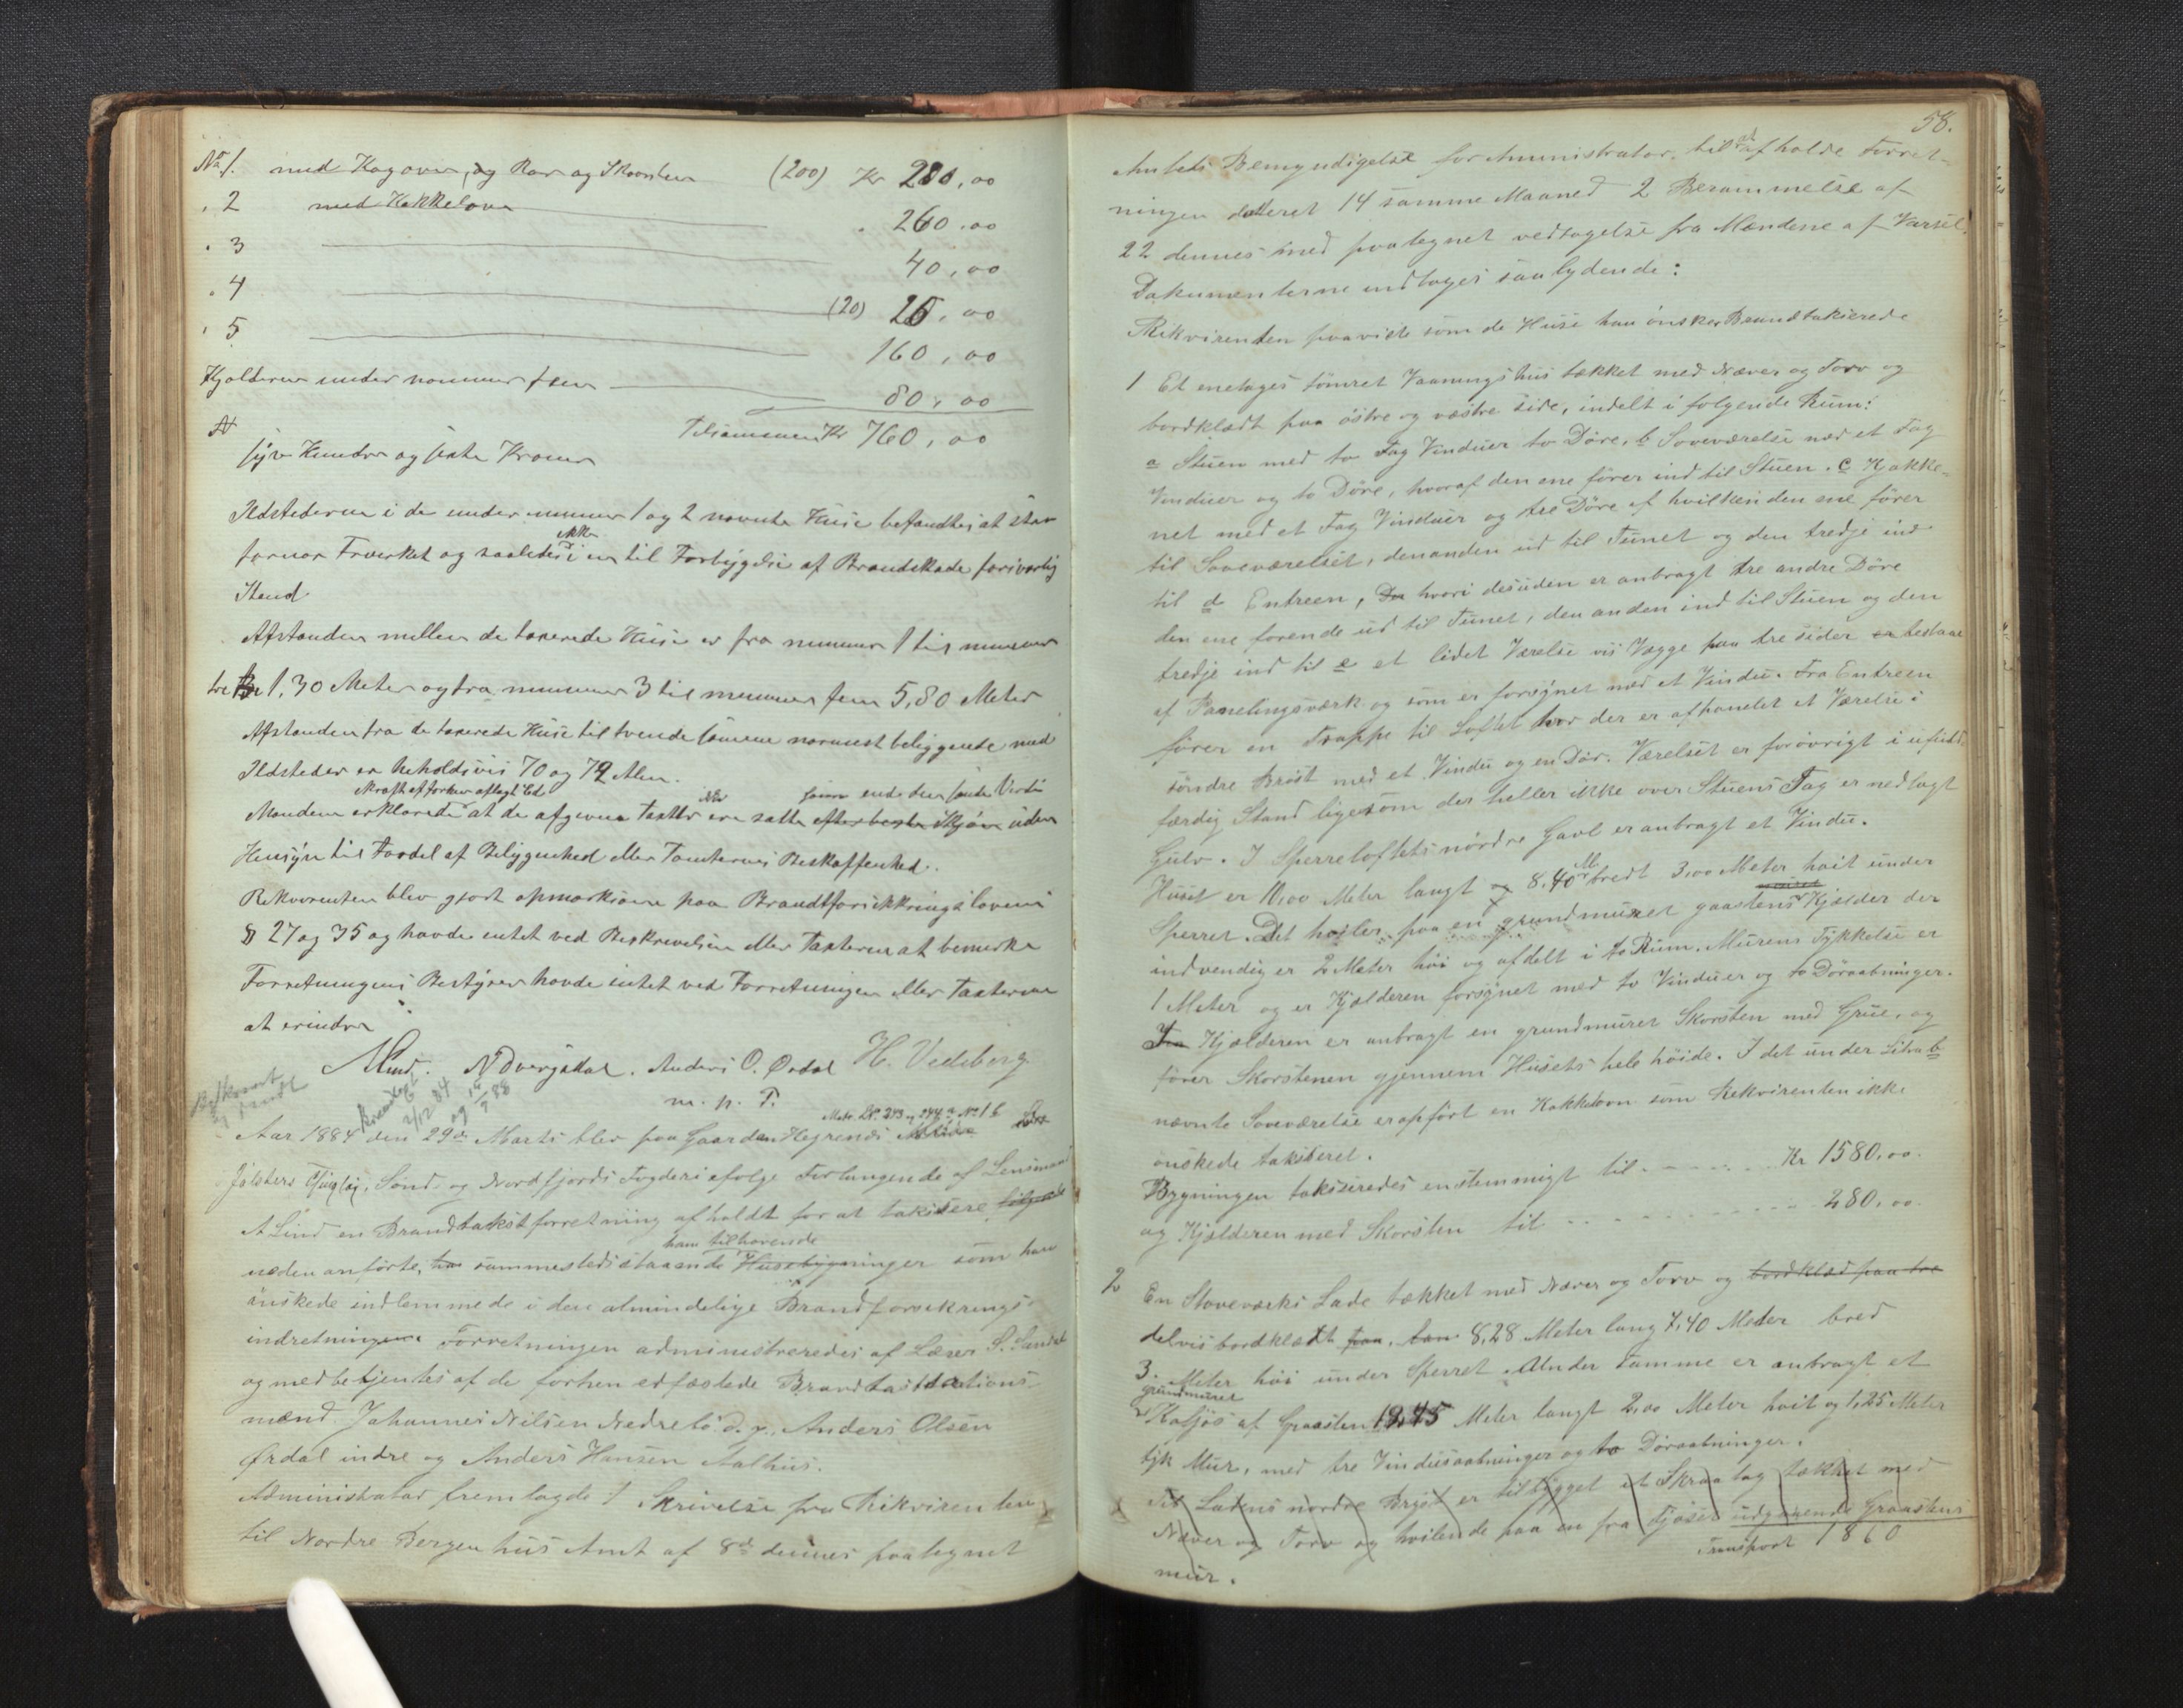 No 1. med Kagovn, og Rør og Skorsten (200) Kr 220,00
" 2 med Kakkelovn " 260,00
" 3 40,00
" 4 (20) 25,00
" 5 160,00
Kjælderen under nommer fem 80,00
Tilsammen Kr 760,00
syv Hundre og seksti Kroner
Ildstederne i de under nummer 1 og 2 nævnte Huse befandtes at staa
fornær Træverket og saaledes ikke i en til Forbygelse af Brandskade forsvarlig
Stand
Afstanden mellem de taxerede Huse er fra nummer 1 til nummer
tre 1,30 Meter og fra nummer 3 til nummer fem 5,80 Meter
Afstanden fra de taxerede Huse til tvende samme nærmest beliggende med
Ildsteder er beholdsvis 70 og 72 Alen.
Mændene erklærede i Kraft af forhen aflagt Ed at de afgivne Taxter ikke ere satte efter beste Skjøn uden
større end den sande Værdi
Hensyn til Fordel af Beliggenhed eller Tomternes Beskaffenhed.
Rekvirenten blev gjort opmærksom paa Brandforsikkringslovens
§ 27 og 35 og havde intet ved Beskrivelsen eller Taxterne at bemerke
Forretningens Bestyrer havde intet ved Forretningen eller Taxterne
at erindre
A Lind. N Dvergsdal. Anders O. Ørdal H. Vedeberg
m. p. P.
Matr. No 243 og 244 a No 1 b
Aar 1884 den 29de Marts blev paa Gaarden Hegrenes
Jølsters Thinglag, Sønd og Nordfjords Fogderi efølge Forlangende af Lensmand
A Lind en Brandtakstforretning afholdt for at taksere følgende
nedenanførte, sammesteds staaende ham tilhørende Husebygninger som han
ønskede indlemmede i den almindelige Brandforsikrings-
indretningen. Forretningen administreredes af Lærer S. Sandal
og medbetjentes af de forhen edfæstede Brandtaxtations-
mænd Johannes Nilsen Nedrebö d. y., Anders Olsen
Ørdal indre og Anders Hansen Aalhus.
Administrator fremlagde 1 Skrivelse fra Rekvirenten
til Nordre Bergenhus Amt af 8de dennes paategnet
58.
Amtets Bemyndigelse for Aministrator til at afholde Forret-
ningen dateret 14 samme Maaned 2 Berammelse af
22 dennes med paategnet vedtagelse fra Mændene af Varsel.
Dokumenterne indtages saalydende:
Rekvirenten paaviste som de Huse han ønsker Brandtakserede
1 Et enetages tømret Vaaningshus tækket med Næver og Torv og
bordklædt paa östre og vestre Side, indelt i følgende Rum:
a Stuen med to Fag Vinduer to Döre, b Soveværelse med et Fag
Vinduer og to Döre, hvoraf den ene förer ind til Stuen. c Kjøkke-
net med et Fag Vinduer og tre Döre af hvilken den ene förer
til Soveværelset, den anden ud til Tunet og den tredje ind
til d Entreen, hvori desuden er anbragt tre andre Döre
den ene førende ud til Tunet, den anden ind til Stuen og den
tredje ind til e et lidet Værelse vis Vægge paa tre sider er bestaar
af Panelingsværk og som er forsynet med et Vindu. Fra Entreen
förer en Trappe til Loftet hvor der er afpanelet et Værelse i
söndre Bröst med et Vindu og en Dör. Værelset er forövrigt i ufuld-
færdig Stand ligesom der heller ikke over Stuens Tag er nedlagt
Gulv. I Sperreloftets nördre Gavl er anbragt et Vindu.
Huset er 10,00 Meter langt og 8,40 M. bredt 3,00 Meter höit under
Sperret. Det hviler paa en grundmuret graastens Kjælder der
indvendig er 2 Meter höi og afdelt i to Rum. Murens Tykkelse er
1 Meter og er Kjælderen forsynet med to Vinduer og to Döraabninger.
Fra Kjælderen er anbragt en grundmuret Skorsten med Grue, og
förer Skorstenen gjennem Husets hele höide. I det under Litra b
nævnte Soveværelse er opfört en Kakkelovn som Rekvirenten ikke
önskede takseret.
Bygningen takseredes enstemmigt til Kr 1580,00.
og Kjælderen med Skorsten til 280,00.
2 En Stoveværks Lade tækket med Næver og Torv og bordklæd paa tre
delvis bordklædt 8,28 Meter lang 7,40 Meter bred
3. Meter höi under Sperret. Under samme er anbragt et
grundmuret
Kofjös af Graasten 12,45 Meter langt 2,00 Meter höit og 1,25 Meter
tyk Mur, med tre Vinduesaabninger og to Döraabninger.
Til Ladens nordre Bryst er tilbygget et Skraatag tækket med
Næver og Torv og hvilende paa en fra Fjöset udgaaende Graastens
mur.
Transport 1860